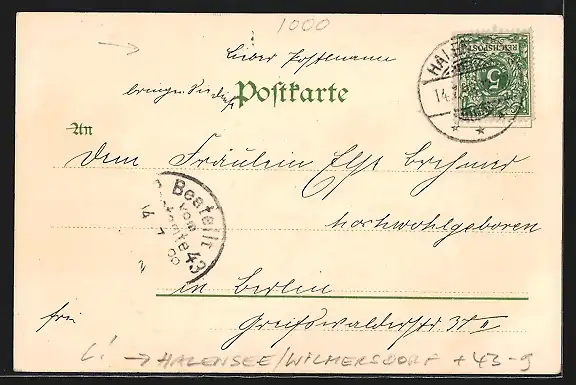 1000
Lieber Postmann
bringen Sie dies
Postkarte
REICHSPOST
5
HALEN
14.7.
An
Dem Fräulein Else
hochwohlgeboren
Bestellt
vom
Postamte 43
14 7 99
in Berlin
frei
Greifswalderstr 37 II
L! → HALENSEE/WILMERSDORF + 43-9